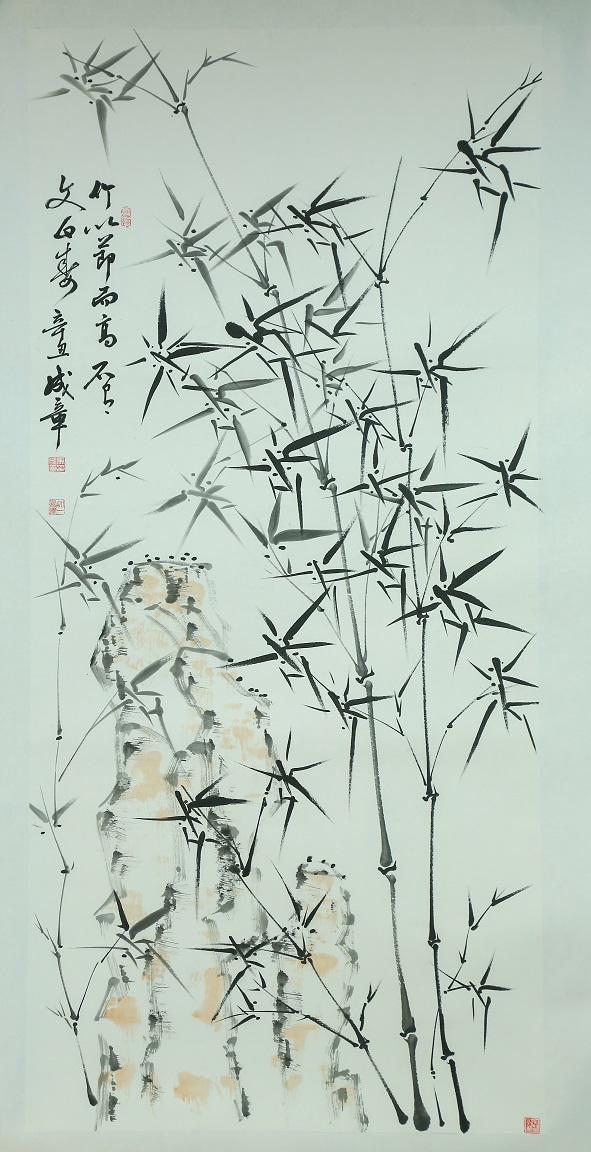 竹以節而高石以
文而壽 辛丑 成章